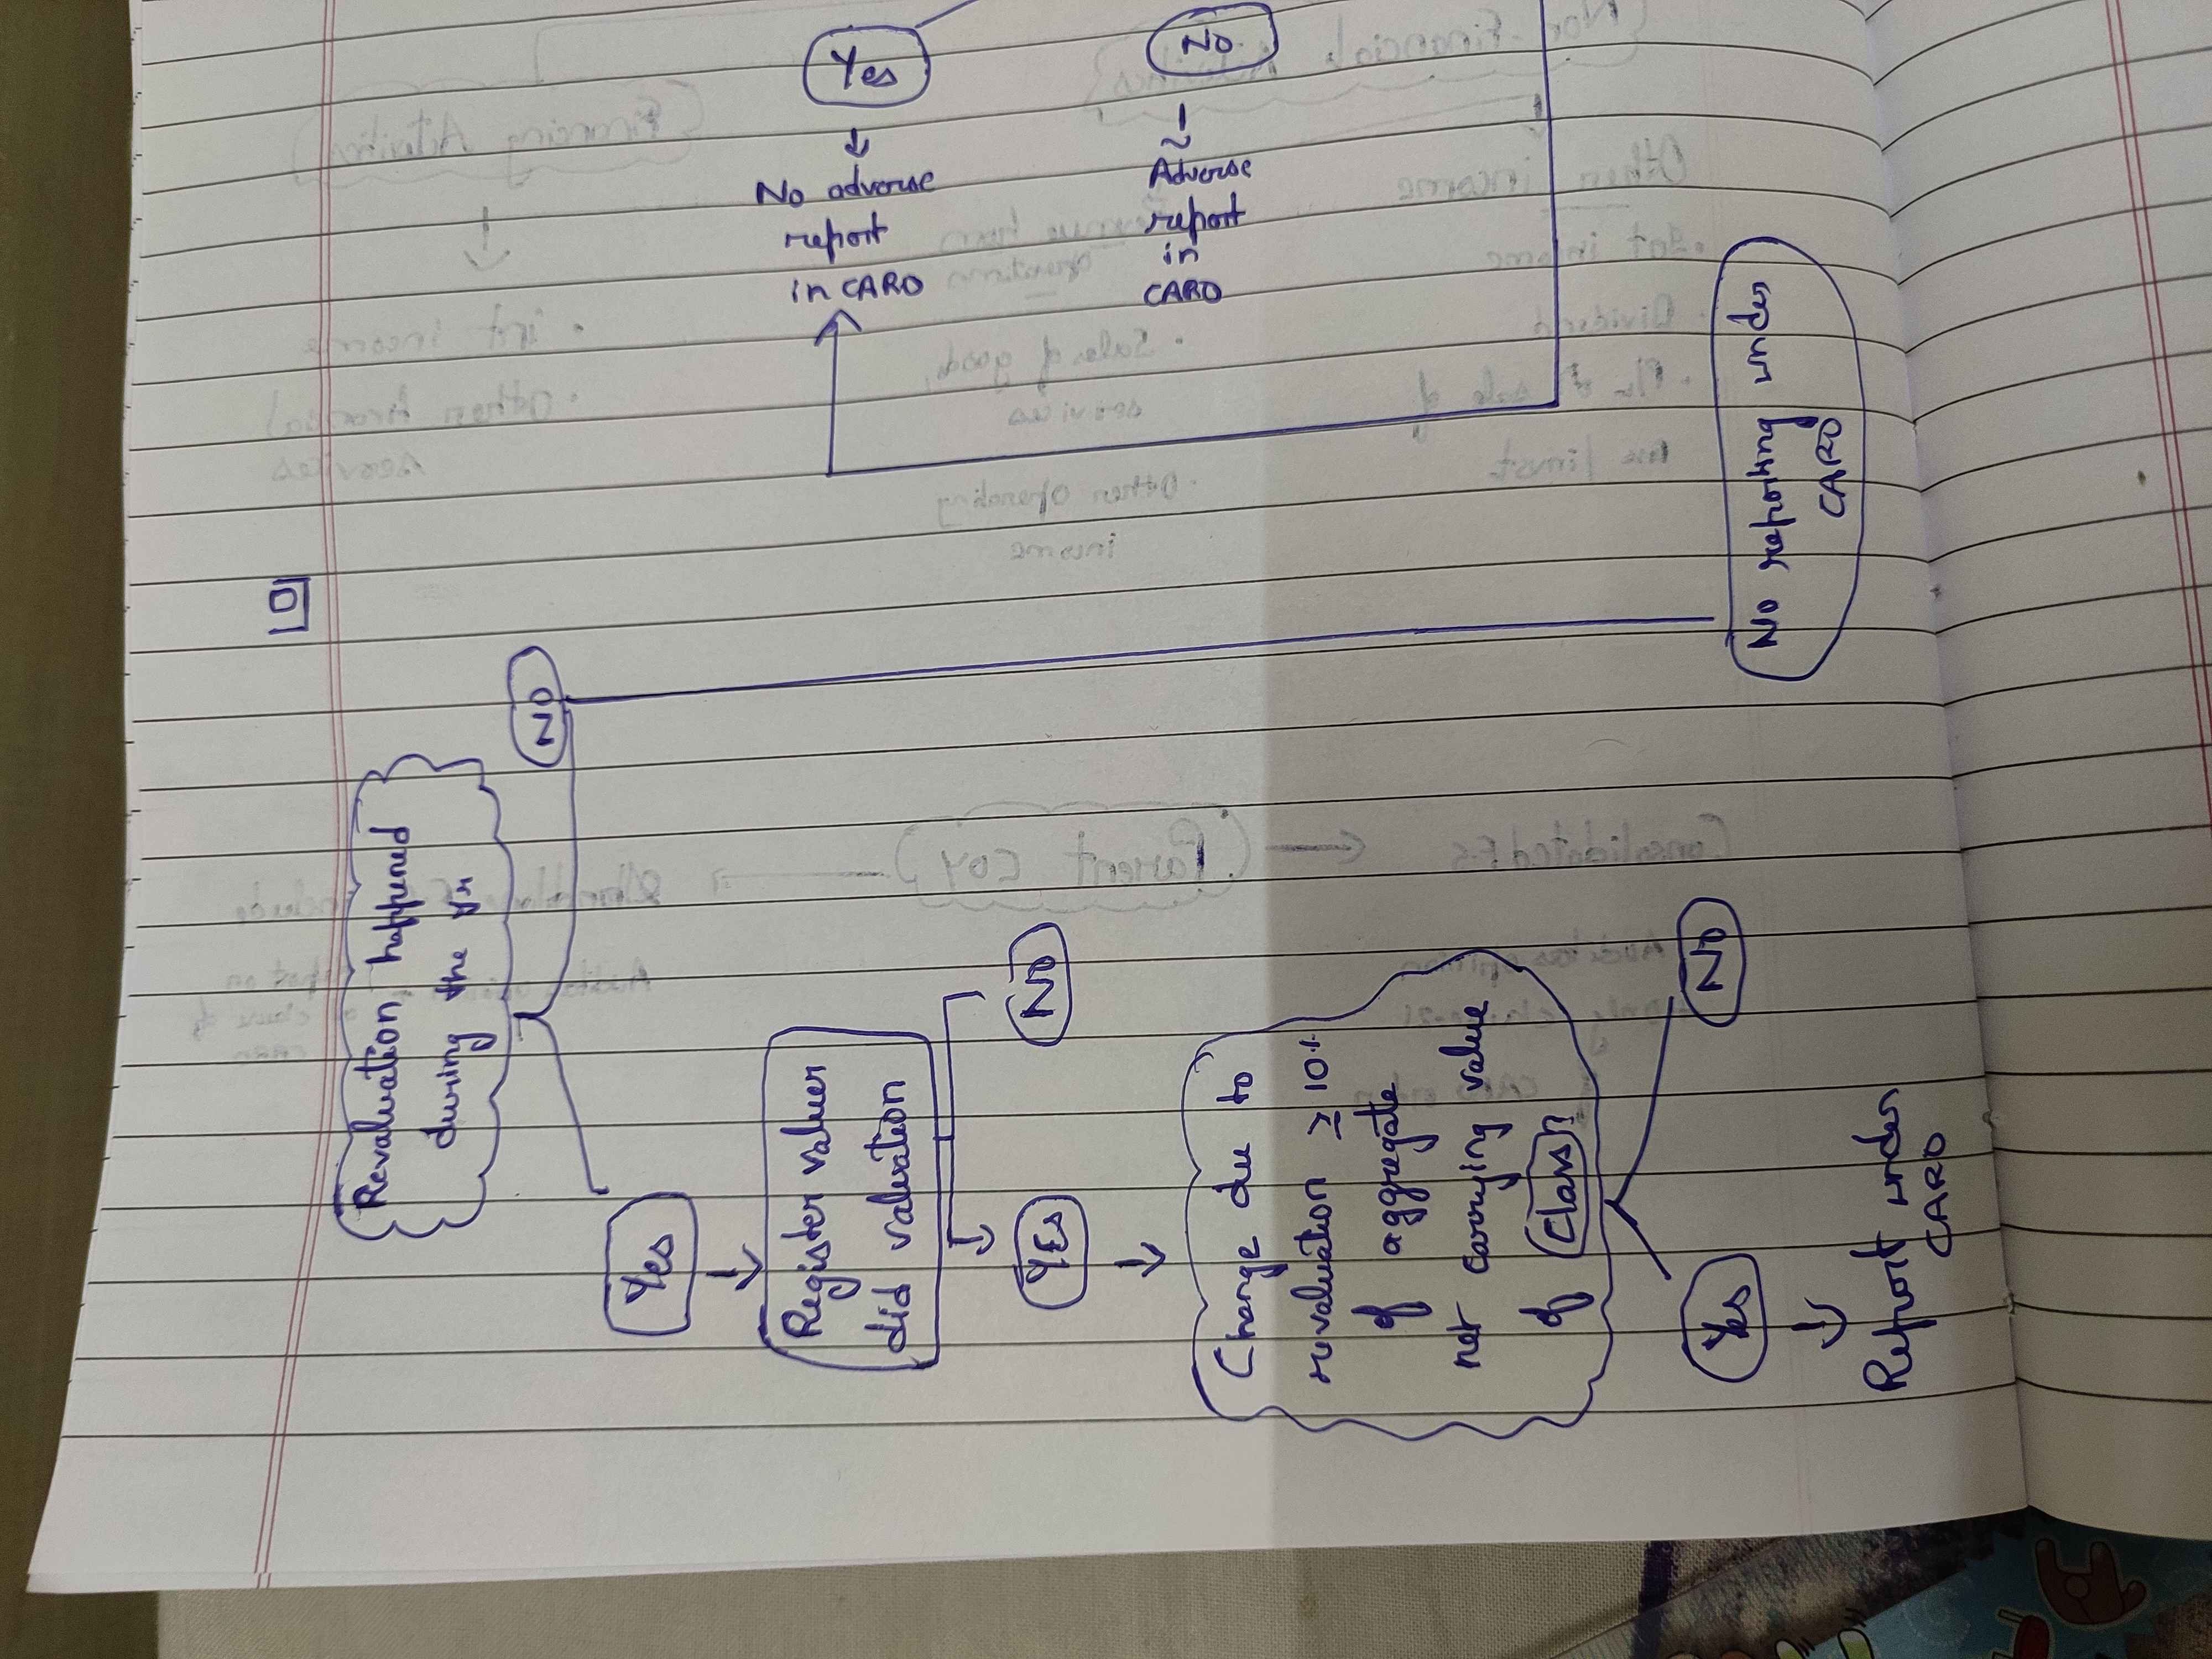 Yes
No.
No adverse
report
in CARO
Adverse
report
in
CARO
[D]
Revaluation happened
during the yr
NO
Yes
Register valuer
did valuation
NO
YES
Change due to
revaluation ≥ 10%
of aggregate
net carrying value
of class
NO
Yes
Report under
CARO
No reporting under
CARO